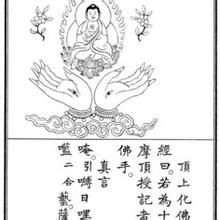 頂上化佛
經曰。若為十
摩頂授記者
佛手。
真言
唵。引嚩日囉
二合藝薩